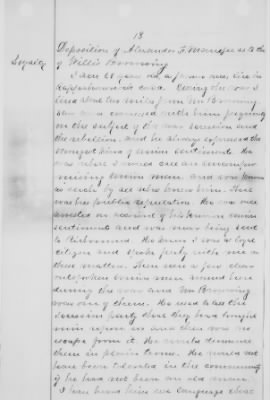 13
Deposition of Alexander F. Menefee as to the
Loyalty of Willis Browning
I am 68 years old, a farmer, live in
Rappahannock Co Va. During the war I
lived about two miles from Mr Browning
saw and conversed with him frequently
on the subject of the war secession and
the rebellion, and he always expressed the
strongest kind of union sentiments. He
was what I would call an uncompro-
mising union man, and was known
as such by all who knew him. This
was his public reputation. He was once
arrested on account of his known union
sentiments and was near being sent
to Richmond. He knew I was a loyal
citizen and spoke freely with me on
these matters. There were a few clear
outspoken union men around here
during the war and Mr Browning
was one of them. He used to tell the
secession party that they had brought
ruin upon us and there was no
escape from it. He would denounce
them in plain terms. He would not
have been tolerated in the community
if he had not been an old man.
I have heard him use language about